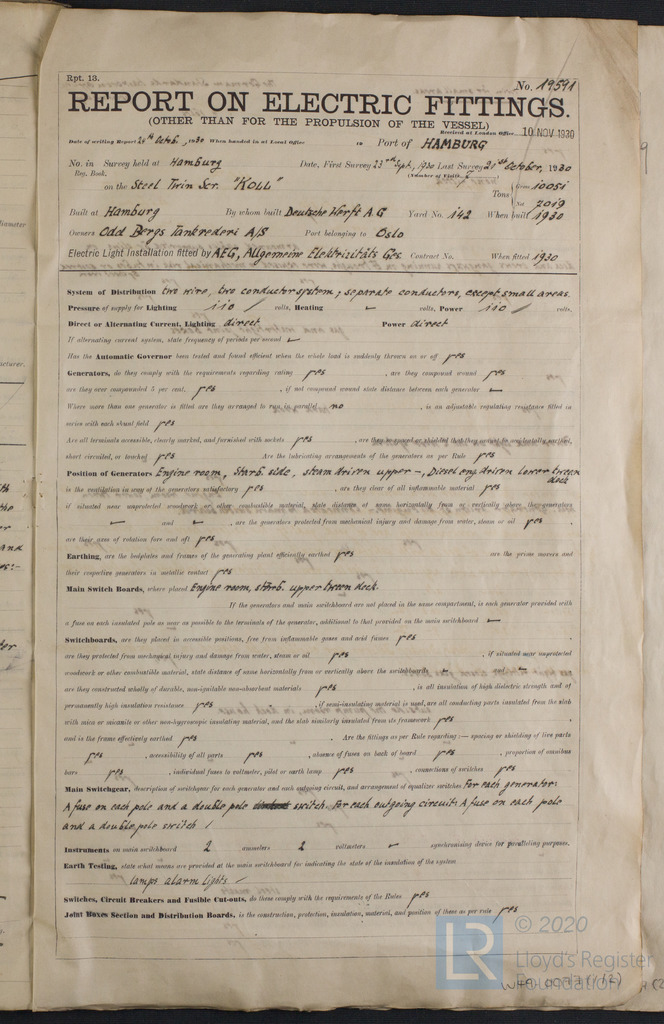 Rpt. 13.
No. 19591
REPORT ON ELECTRIC FITTINGS.
(OTHER THAN FOR THE PROPULSION OF THE VESSEL)
Received at London Office 10 NOV 1930
Date of writing Report 24th Octob. 1930 When handed in at Local Office 10 Port of HAMBURG
No. in Survey held at Hamburg Date, First Survey 23rd Sept, 1930 Last Survey 21st October, 1930
Reg. Book. (Number of Visits 7)
on the Steel Twin Scr. "KOLL" Tons Gross 10051
Net 7019
Built at Hamburg By whom built Deutsche Werft A.G Yard No. 142 When built 1930
Owners Odd Bergs Tankrederi A/S Port belonging to Oslo
Electric Light Installation fitted by AEG, Allgemeine Elektrizitäts Ges. Contract No. When fitted 1930
System of Distribution two wire, two conductor system; separate conductors, except small areas.
Pressure of supply for Lighting 110 volts, Heating volts, Power 110 volts.
Direct or Alternating Current, Lighting direct Power direct
If alternating current system, state frequency of periods per second
Has the Automatic Governor been tested and found efficient when the whole load is suddenly thrown on or off yes
Generators, do they comply with the requirements regarding rating yes, are they compound wound yes
are they over compounded 5 per cent. yes, if not compound wound state distance between each generator
Where more than one generator is fitted are they arranged to run in parallel no, is an adjustable regulating resistance fitted in
series with each shunt field yes
Are all terminals accessible, clearly marked, and furnished with sockets yes, are they so spaced or shielded that they cannot be accidentally earthed,
short circuited, or touched yes. Are the lubricating arrangements of the generators as per Rule yes
Position of Generators Engine room, Starb. side, steam driven upper-, Diesel eng. driven lower tween deck
is the ventilation in way of the generators satisfactory yes, are they clear of all inflammable material yes
if situated near unprotected woodwork or other combustible material, state distance of same horizontally from or vertically above the generators
and , are the generators protected from mechanical injury and damage from water, steam or oil yes,
are their axes of rotation fore and aft yes
Earthing, are the bedplates and frames of the generating plant efficiently earthed yes are the prime movers and
their respective generators in metallic contact yes
Main Switch Boards, where placed Engine room, starb. upper tween deck.
If the generators and main switchboard are not placed in the same compartment, is each generator provided with
a fuse on each insulated pole as near as possible to the terminals of the generator, additional to that provided on the main switchboard
Switchboards, are they placed in accessible positions, free from inflammable gases and acid fumes yes,
are they protected from mechanical injury and damage from water, steam or oil yes, if situated near unprotected
woodwork or other combustible material, state distance of same horizontally from or vertically above the switchboards and
are they constructed wholly of durable, non-ignitable non-absorbent materials yes, is all insulation of high dielectric strength and of
permanently high insulation resistance yes, if semi-insulating material is used, are all conducting parts insulated from the slab
with mica or micanite or other non-hygroscopic insulating material, and the slab similarly insulated from its framework yes,
and is the frame effectively earthed yes. Are the fittings as per Rule regarding:— spacing or shielding of live parts
yes, accessibility of all parts yes, absence of fuses on back of board yes, proportion of omnibus
bars yes, individual fuses to voltmeter, pilot or earth lamp yes, connections of switches yes
Main Switchgear, description of switchgear for each generator and each outgoing circuit, and arrangement of equalizer switches For each generator:
A fuse on each pole and a double pole switch. For each outgoing circuit: A fuse on each pole
and a double pole switch
Instruments on main switchboard 2 ammeters 2 voltmeters synchronising device for paralleling purposes.
Earth Testing, state what means are provided at the main switchboard for indicating the state of the insulation of the system
lamps alarm lights
Switches, Circuit Breakers and Fusible Cut-outs, do these comply with the requirements of the Rules yes
Joint Boxes Section and Distribution Boards, is the construction, protection, insulation, material, and position of these as per rule yes
LR
© 2020
Lloyd's Register
Foundation